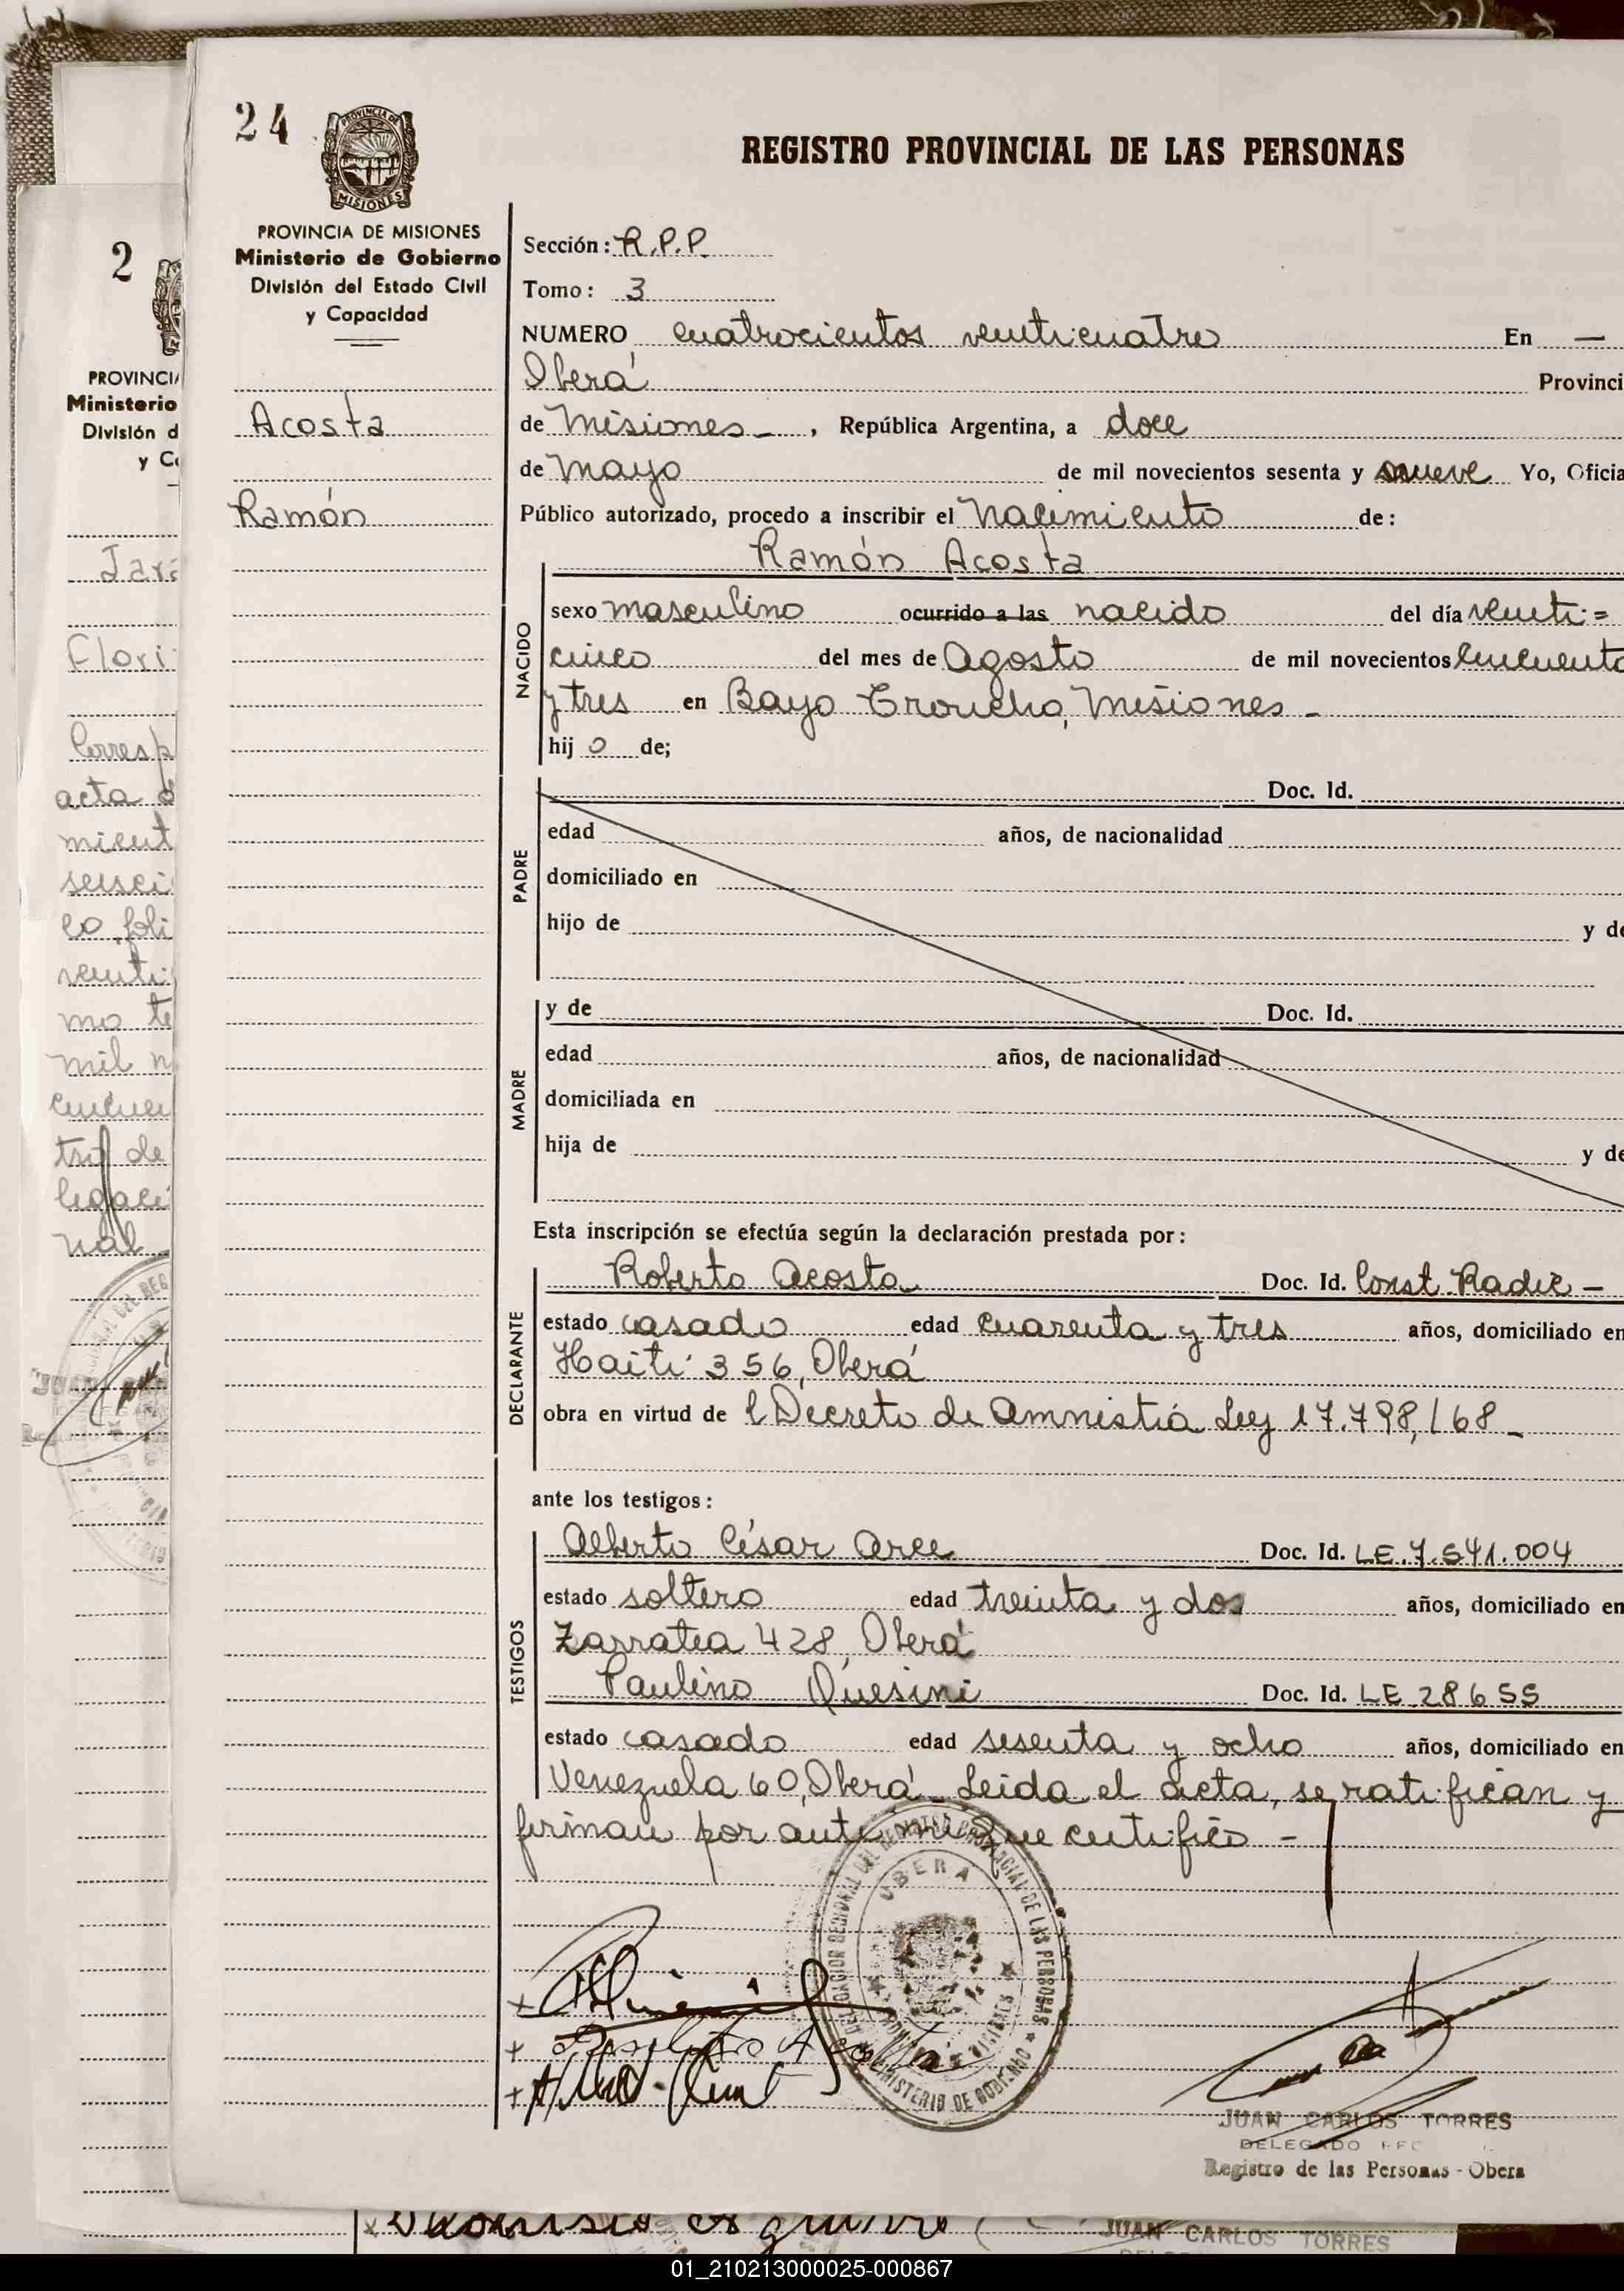 24
PROVINCIA DE
MISIONES
REGISTRO PROVINCIAL DE LAS PERSONAS
PROVINCIA DE MISIONES
Ministerio de Gobierno
División del Estado Civil
y Capacidad
Acosta
Ramón
Sección: R.P.P.
Tomo: 3
NUMERO cuatrocientos veinticuatro En —
Oberá Provinci
de Misiones - , República Argentina, a doce
de mayo de mil novecientos sesenta y nueve Yo, Oficia
Público autorizado, procedo a inscribir el Nacimiento de:
Ramón Acosta
NACIDO
sexo masculino ocurrido a las nacido del día veinti=
cinco del mes de Agosto de mil novecientos cincuenta
y tres en Bayo Troncho, Misiones -
hij o de;
PADRE
Doc. Id.
edad años, de nacionalidad
domiciliado en
hijo de y de
MADRE
y de Doc. Id.
edad años, de nacionalidad
domiciliada en
hija de y de
Esta inscripción se efectúa según la declaración prestada por:
DECLARANTE
Roberto Acosta Doc. Id. Const. Radic -
estado casado edad cuarenta y tres años, domiciliado en
Haití 356, Oberá
obra en virtud de l Decreto de Amnistía Ley 17.798,/68 -
ante los testigos:
TESTIGOS
Alberto César Arce Doc. Id. LE.7.541.004
estado soltero edad treinta y dos años, domiciliado en
Zarratea 428, Oberá
Paulino Quesini Doc. Id. LE 28655
estado casado edad sesenta y ocho años, domiciliado en
Venezuela 60, Oberá - Leida el acta, se ratifican y
firman por ante mi que certifico -
DELEGACION REGIONAL DEL REGISTRO PROVINCIAL DE LAS PERSONAS
OBERA
MINISTERIO DE GOBIERNO
JUAN CARLOS TORRES
DELEGADO
Registro de las Personas - Obera
2
PROVINCI
Ministerio
División d
y C
Jara
Flori
Corresp
acta d
mient
seisci
co foli
veinti
mo te
mil n
cincuen
tro de
legaci
nal
JUAN CARLOS TORRES
01_210213000025-000867